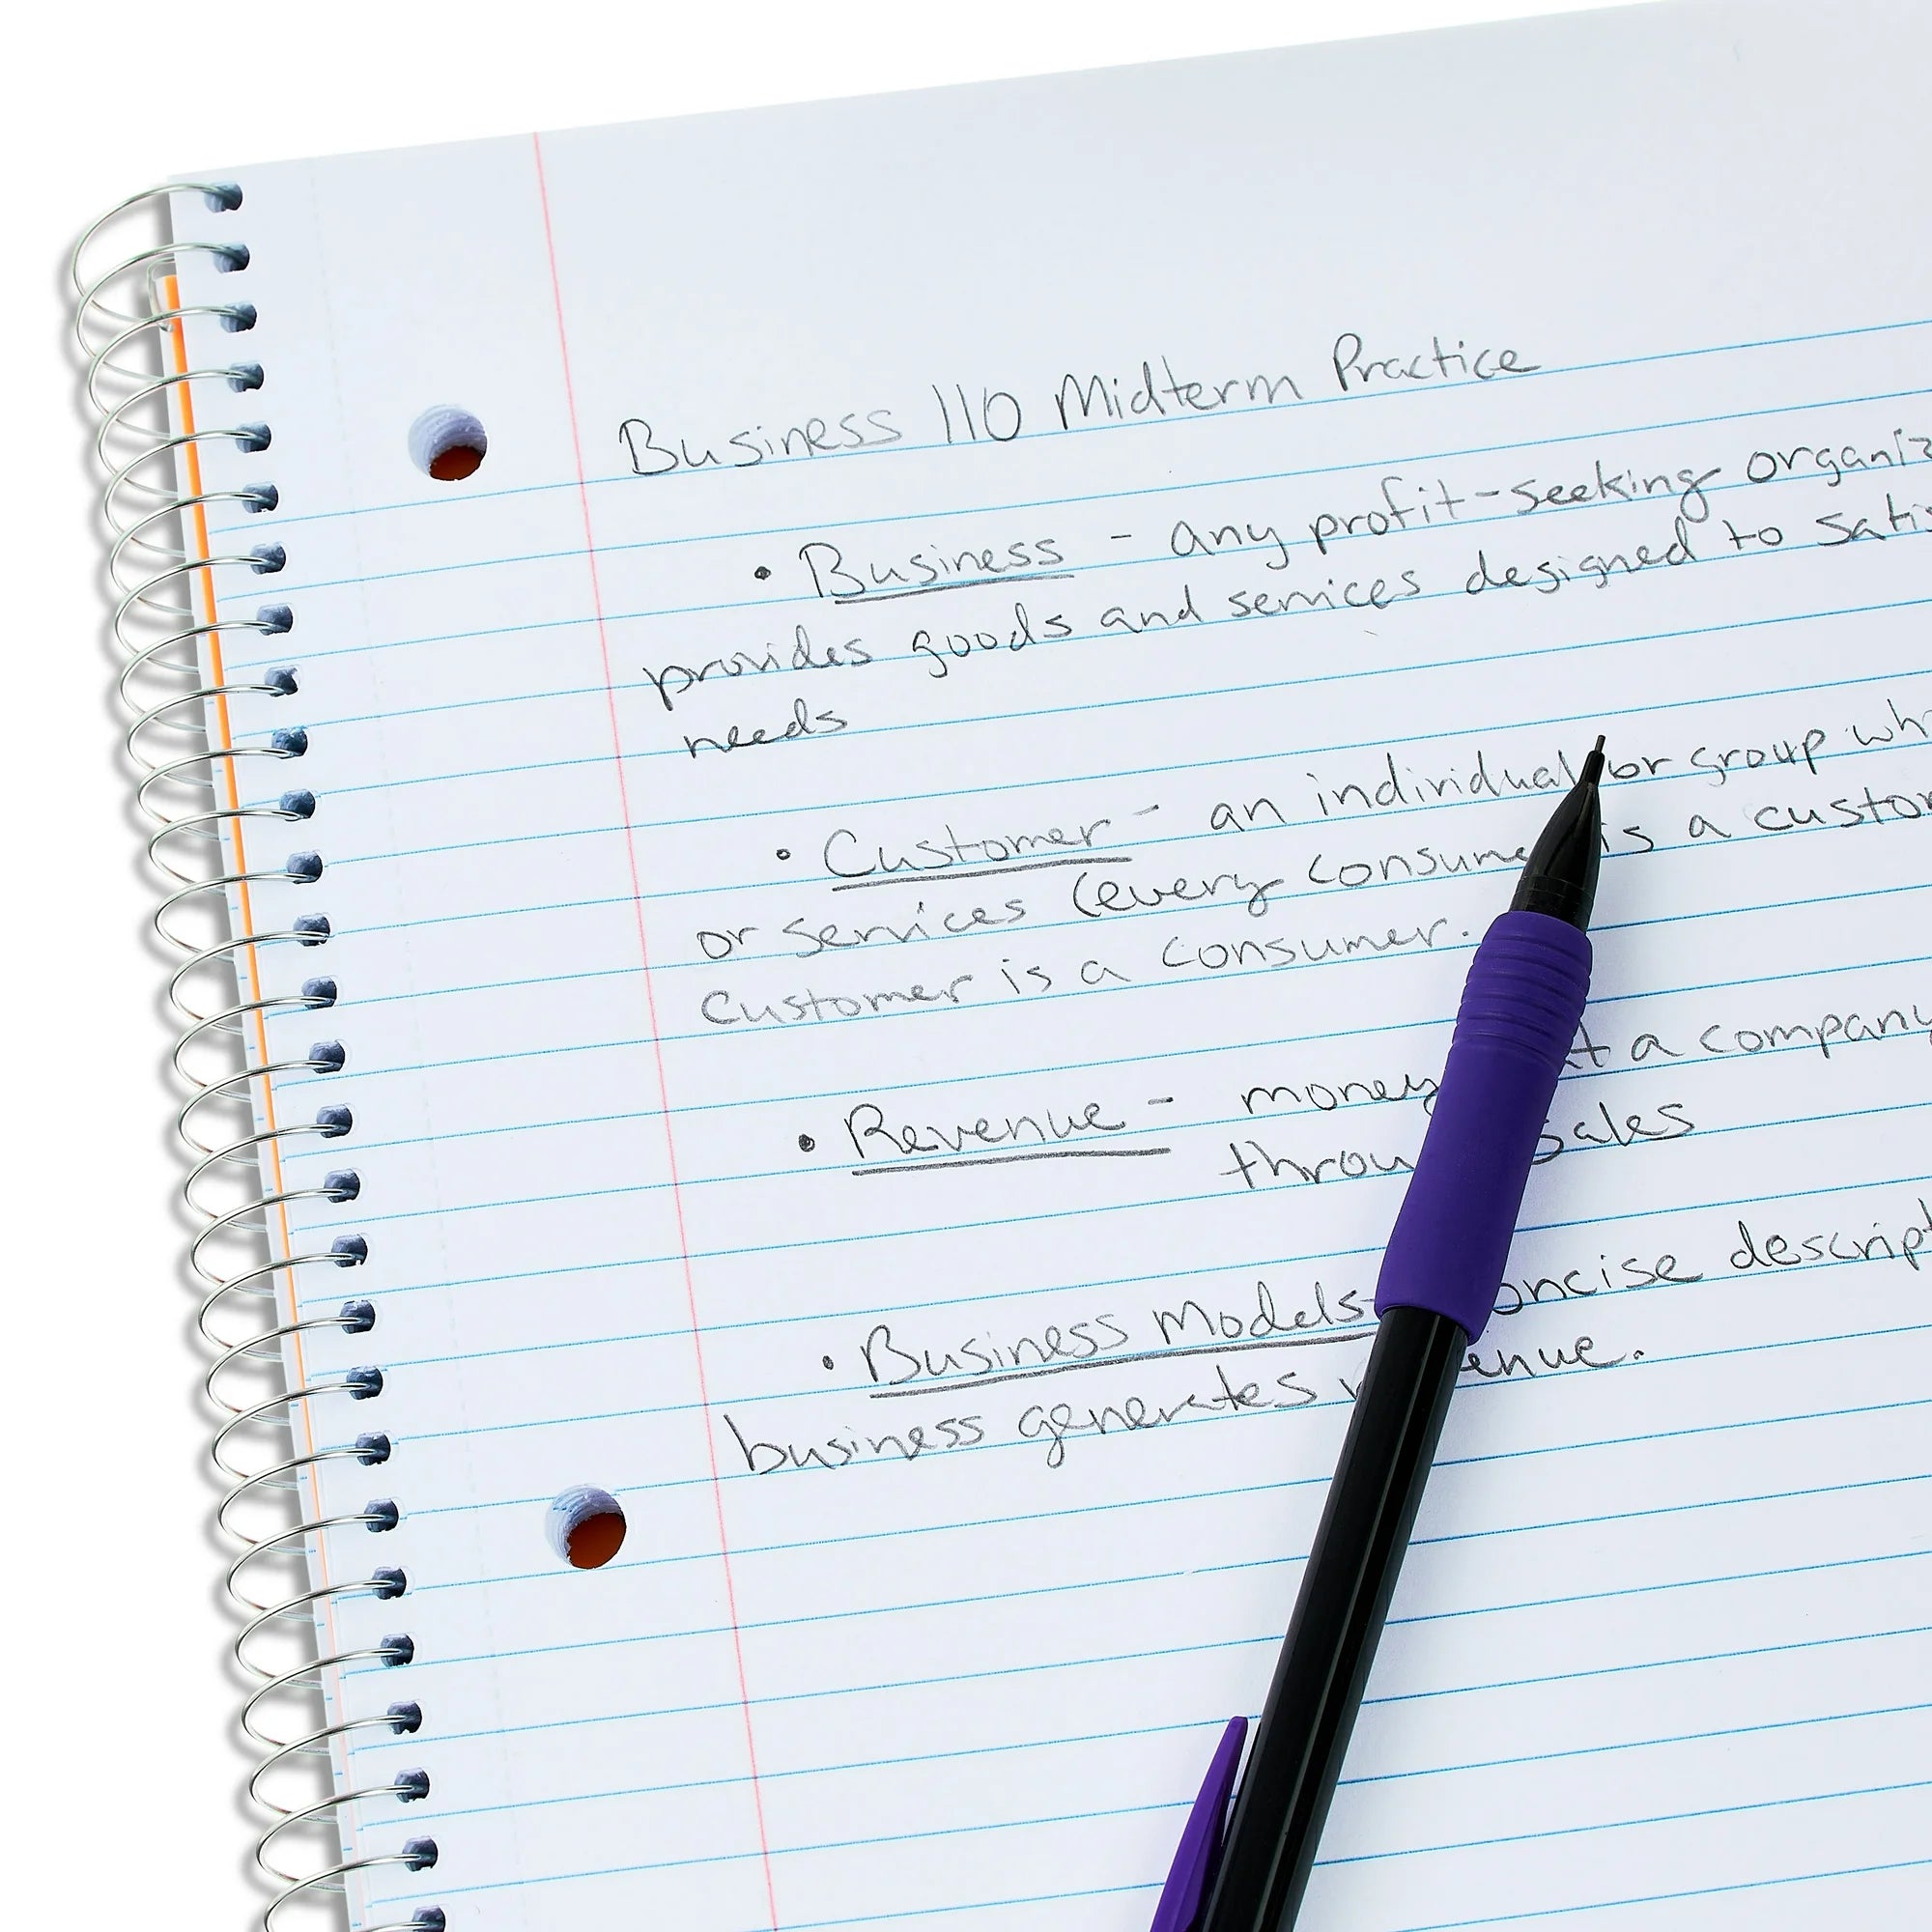 Business 110 Midterm Practice
• Business - any profit-seeking
provides goods and services designed to
needs
• Customer - an individual or group
or services (every is a
Customer is a consumer.
• Revenue - money a company
sales
• Business Models-
business generates